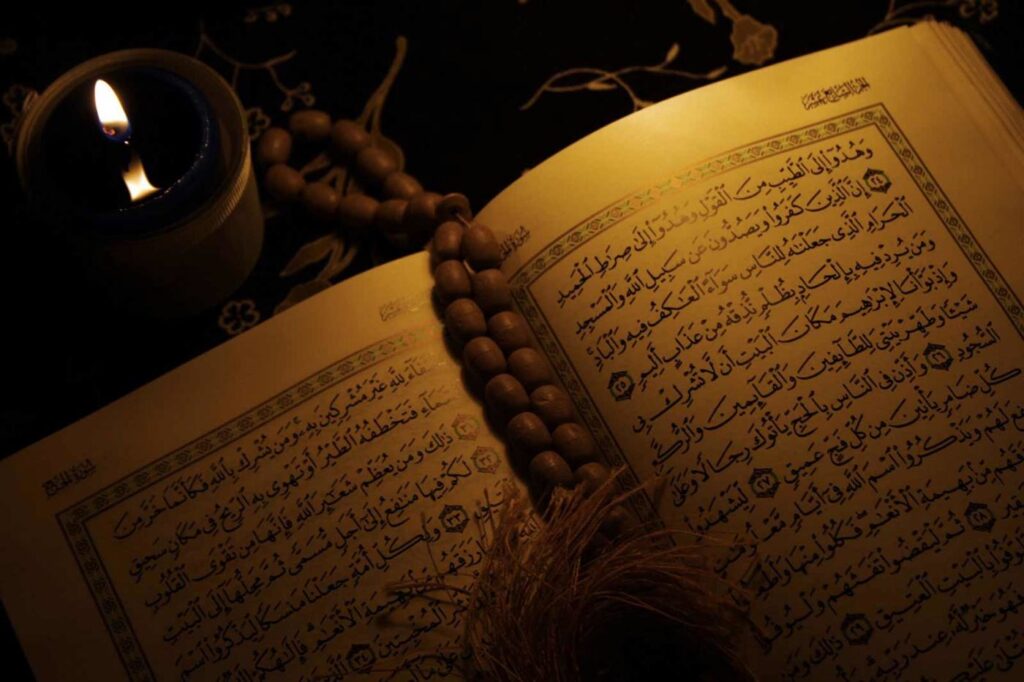 الجزء السابع عشر
سورة الحج
وَهُدُوٓا۟ إِلَى ٱلطَّيِّبِ مِنَ ٱلْقَوْلِ وَهُدُوٓا۟ إِلَىٰ صِرَٰطِ ٱلْحَمِيدِ
٢٤ إِنَّ ٱلَّذِينَ كَفَرُوا۟ وَيَصُدُّونَ عَن سَبِيلِ ٱللَّهِ وَٱلْمَسْجِدِ
ٱلْحَرَامِ ٱلَّذِى جَعَلْنَٰهُ لِلنَّاسِ سَوَآءً ٱلْعَٰكِفُ فِيهِ وَٱلْبَادِ
وَمَن يُرِدْ فِيهِ بِإِلْحَادٍۭ بِظُلْمٍ نُّذِقْهُ مِنْ عَذَابٍ أَلِيمٍ ٢٥
وَإِذْ بَوَّأْنَا لِإِبْرَٰهِيمَ مَكَانَ ٱلْبَيْتِ أَن لَّا تُشْرِكْ بِى
شَيْـًٔا وَطَهِّرْ بَيْتِىَ لِلطَّآئِفِينَ وَٱلْقَآئِمِينَ وَٱلرُّكَّعِ
ٱلسُّجُودِ ٢٦ وَأَذِّن فِى ٱلنَّاسِ بِٱلْحَجِّ يَأْتُوكَ رِجَالًا وَعَلَىٰ
كُلِّ ضَامِرٍ يَأْتِينَ مِن كُلِّ فَجٍّ عَمِيقٍ ٢٧ لِّيَشْهَدُوا۟
لَهُمْ وَيَذْكُرُوا۟ ٱسْمَ ٱللَّهِ فِىٓ أَيَّامٍ
مِّنۢ بَهِيمَةِ ٱلْأَنْعَٰمِ فَكُلُوا۟ مِنْهَا
٢٨ ثُمَّ لْيَقْضُوا۟ تَفَثَهُمْ
بِٱلْبَيْتِ ٱلْعَتِيقِ ٢٩ ذَٰلِكَ وَمَن
عِندَ رَبِّهِۦ
سورة الحج
لِلَّهِ غَيْرَ مُشْرِكِينَ بِهِۦ وَمَن يُشْرِكْ بِٱللَّهِ فَكَأَنَّمَا خَرَّ مِنَ
فَتَخْطَفُهُ ٱلطَّيْرُ أَوْ تَهْوِى بِهِ ٱلرِّيحُ فِى مَكَانٍ سَحِيقٍ
ذَٰلِكَ وَمَن يُعَظِّمْ شَعَٰٓئِرَ ٱللَّهِ فَإِنَّهَا مِن تَقْوَى ٱلْقُلُوبِ
لَكُمْ فِيهَا مَنَٰفِعُ إِلَىٰٓ أَجَلٍ مُّسَمًّى ثُمَّ مَحِلُّهَآ إِلَى ٱلْبَيْتِ
٣٣ وَلِكُلِّ أُمَّةٍ جَعَلْنَا مَنسَكًا لِّيَذْكُرُوا۟ ٱسْمَ
ٱلْأَنْعَٰمِ فَإِلَٰهُكُمْ
ٱلْمُخْبِتِينَ ٣٤